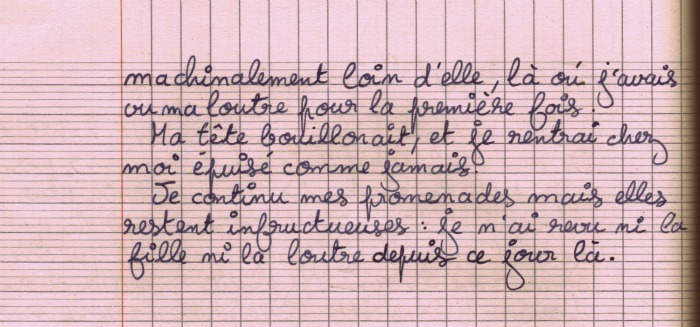 machinalement loin d'elle, là où j'avais
vu ma loutre pour la première fois.
Ma tête bouillonait, et je rentrai chez
moi épuisé comme jamais.
Je continu mes promenades mais elles
restent infructueuses : je n'ai revu ni la
fille ni la loutre depuis ce jour là.